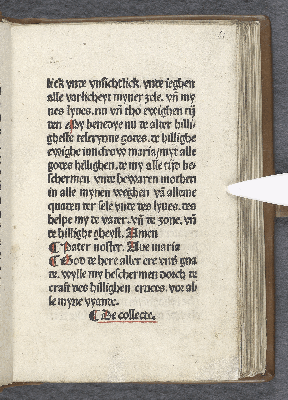 lick vnde vnsichtlick. vnde ieghen
alle varlicheyt myner zele. vñ my
nes lyues. nu vñ tho ewighen tij
den My benedye nu de alder hilli
gheste telegynne godes. de hillighe
ewighe iuncfrow maria/myt alle
godes hillighen. de my alle tijd be
schermen vnde bewaren mothen
in alle mynen weghen vñ alleme
quaden der sele vnde des lyues. des
helpe my de vader. vñ de zone. vñ
de hillighe gheyst. Amen
¶ Pater noster. Aue maria
¶ God de here aller ere vnd gna
de. wylle my beschermen dorch de
craft des hillighen cruces. vor al
le myne vyande.
¶ De collecte.